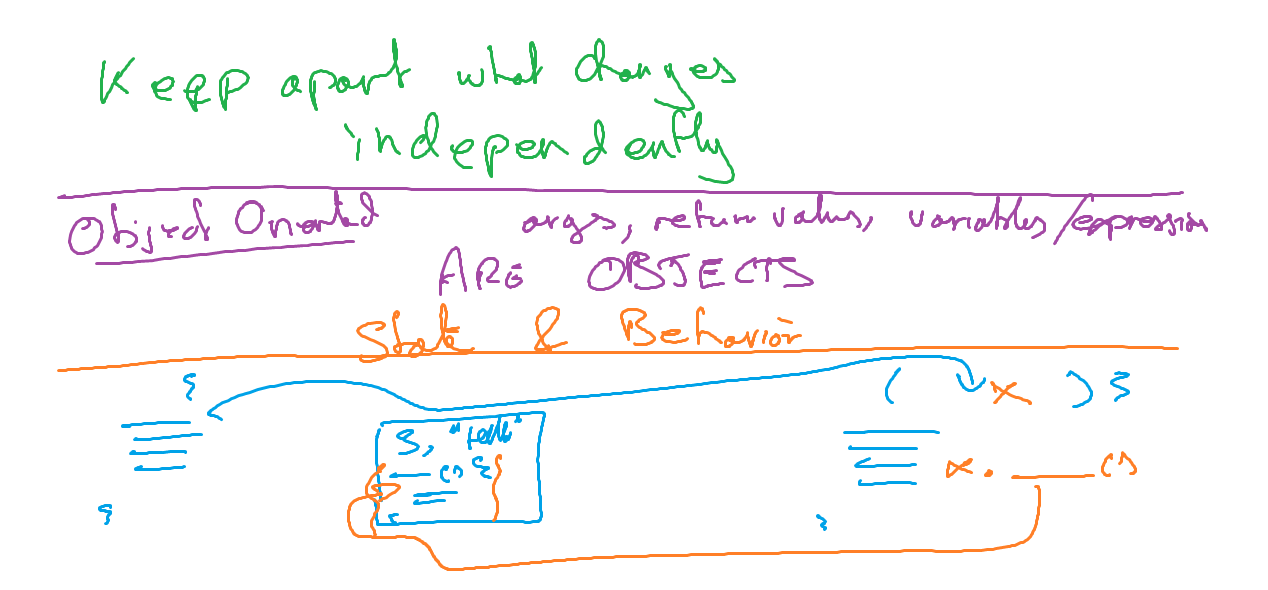 Keep apart what changes
independently
Object Oriented args, return values, variables/expression
ARE OBJECTS
State & Behavior
{ ( x ) {
3, "
() {
x. ____ ()
}